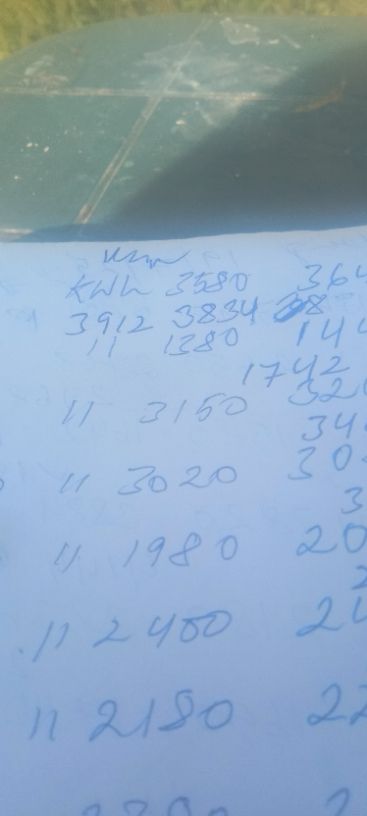 KWh 3580 364
3912 3834
11 1380 144
1742
11 3150 320
344
11 3020 30
3
11 1980 20
2
11 2400 24
11 2180 22